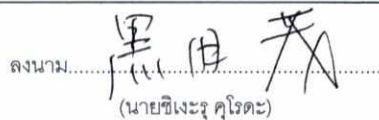 ลงนาม 黒田 茂
(นายชิเงะรุ คุโรดะ)